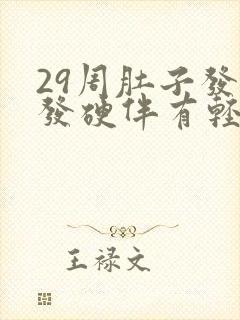 29周肚子發
發硬伴有輕
王禄文